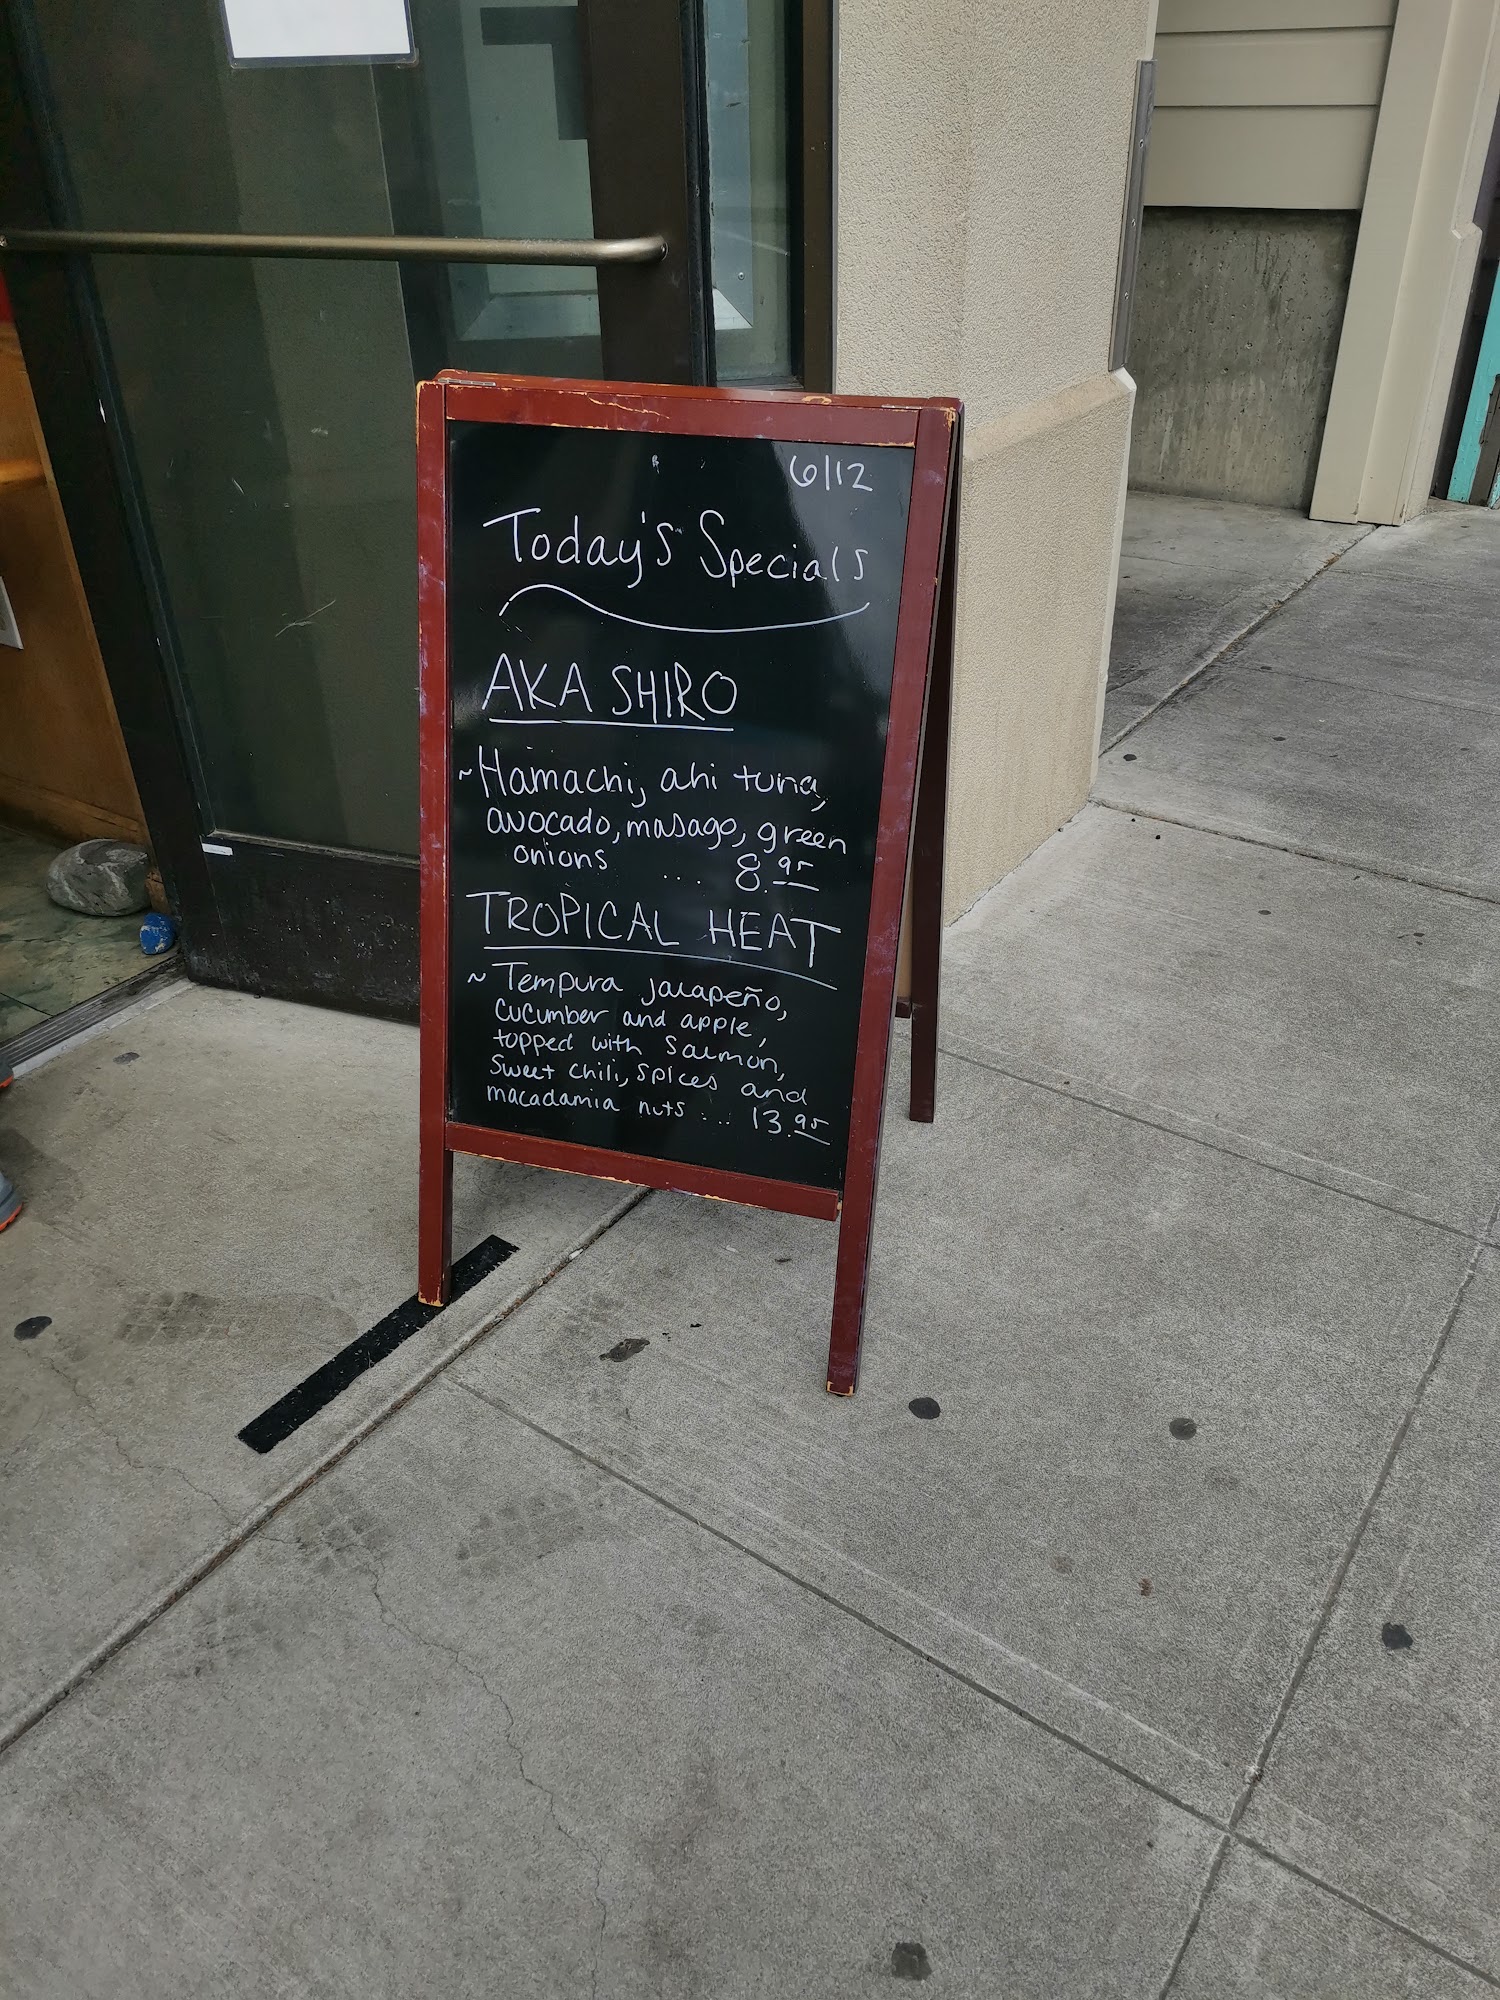 6/12
Today's Specials
AKA SHIRO
~Hamachi, ahi tuna,
avocado, masago, green
onions ... 8.95
TROPICAL HEAT
~ Tempura jalapeño,
cucumber and apple,
topped with salmon,
sweet chili, spices and
macadamia nuts ... 13.95